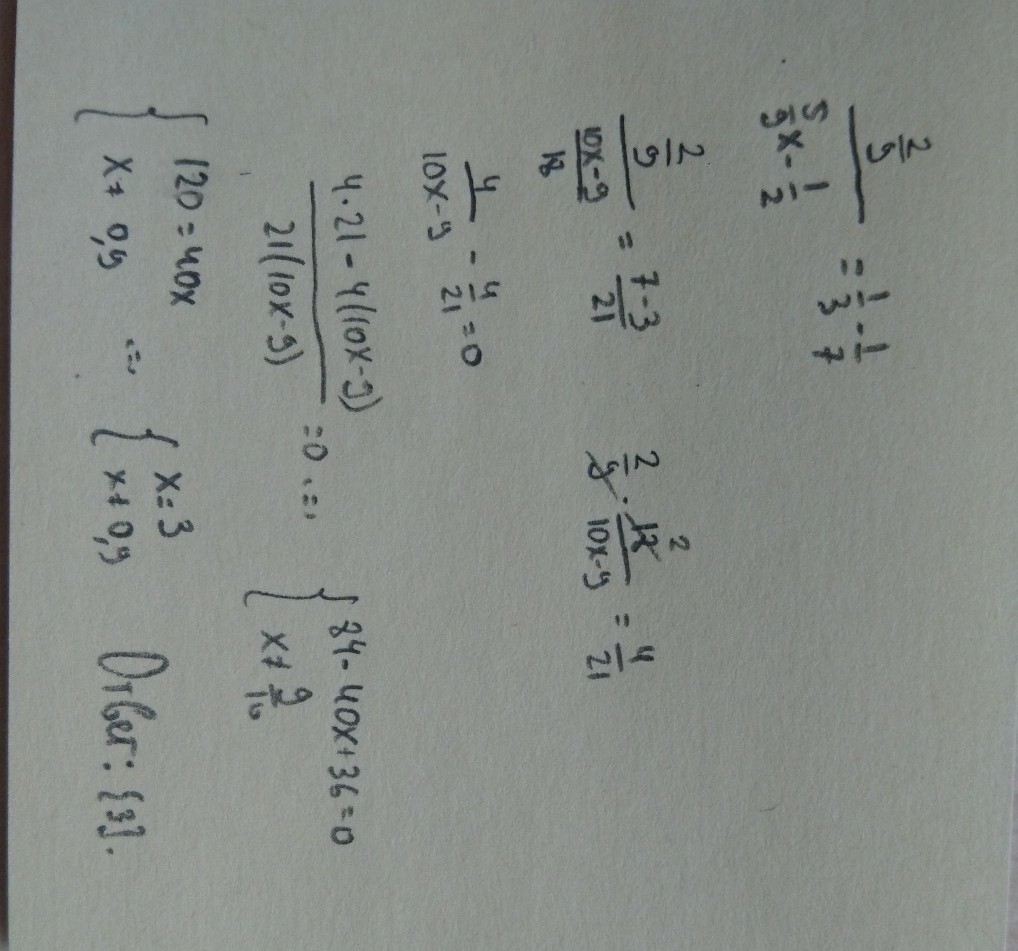 (2/9)/(5/9x - 1/2) = 1/3 - 1/7
(2/9)/((10x-9)/18) = (7-3)/21   2/9 · 18/(10x-9) = 4/21   2
4/(10x-9) - 4/21 = 0
(4·21 - 4(10x-9))/(21(10x-9)) = 0 <=> { 84 - 40x + 36 = 0
x ≠ 9/10
{ 120 = 40x <=> { x = 3
x ≠ 0,9   x ≠ 0,9   Ответ: {3}.